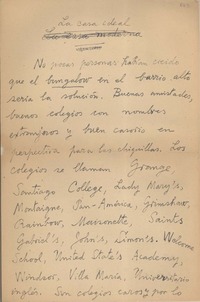 La casa ideal
La casa moderna
No pocas personas habían creído
que el bungalow en el barrio alto
sería la solución. Buenas amistades,
buenos colegios con nombres
extranjeros y buen casorio en
perspectiva para los chiquillos. Los
colegios se llaman Grange,
Santiago College, Lady Mary's,
Montaigne, San-América,
Craimbow, Maisonette, Saint's
Gabriel's, John's, Simon's. Welcome
School, United State's Academy,
Windsor, Villa María, Universitario
inglés. Son colegios caros y por lo